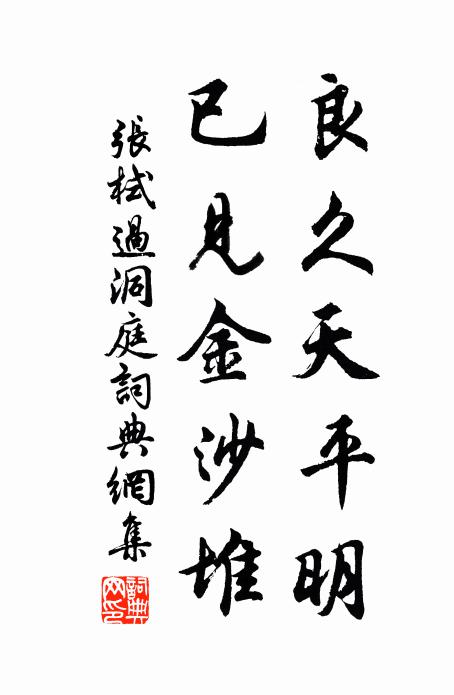 良久天平明
已見金沙堆
張栻過洞庭詞典網集
詞典
网印